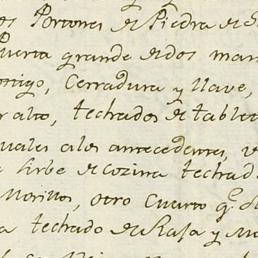 os Portones de Piedra de
Puerta grande de dos man
ostigo, Cerradura y llave,
r alto, techados de tablet
quales a los antecedentes, v
e sirbe de Cozina techad
Morillos, otro Cuarto q.e
a techado de Raja y Mo